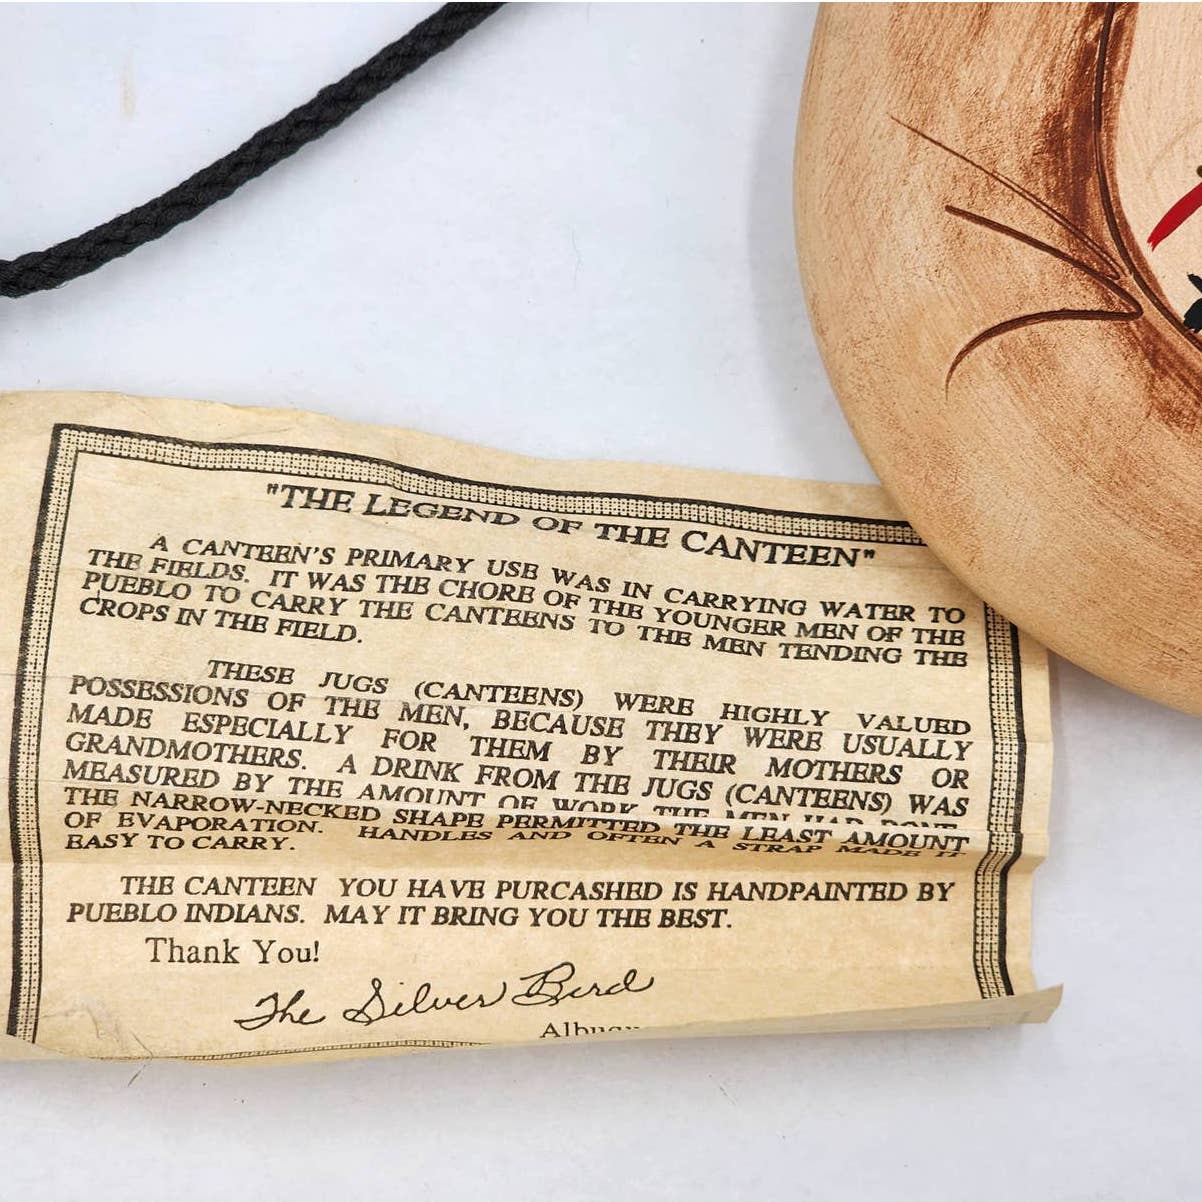 "THE LEGEND OF THE CANTEEN"
A CANTEEN'S PRIMARY USE WAS IN CARRYING WATER TO
THE FIELDS. IT WAS THE CHORE OF THE YOUNGER MEN OF THE
PUEBLO TO CARRY THE CANTEENS TO THE MEN TENDING THE
CROPS IN THE FIELD.
THESE JUGS (CANTEENS) WERE HIGHLY VALUED
POSSESSIONS OF THE MEN, BECAUSE THEY WERE USUALLY
MADE ESPECIALLY FOR THEM BY THEIR MOTHERS OR
GRANDMOTHERS. A DRINK FROM THE JUGS (CANTEENS) WAS
MEASURED BY THE AMOUNT OF WORK THE MEN HAD DONE.
THE NARROW-NECKED SHAPE PERMITTED THE LEAST AMOUNT
OF EVAPORATION. HANDLES AND OFTEN A STRAP MADE IT
EASY TO CARRY.
THE CANTEEN YOU HAVE PURCASHED IS HANDPAINTED BY
PUEBLO INDIANS. MAY IT BRING YOU THE BEST.
Thank You!
The Silver Bird